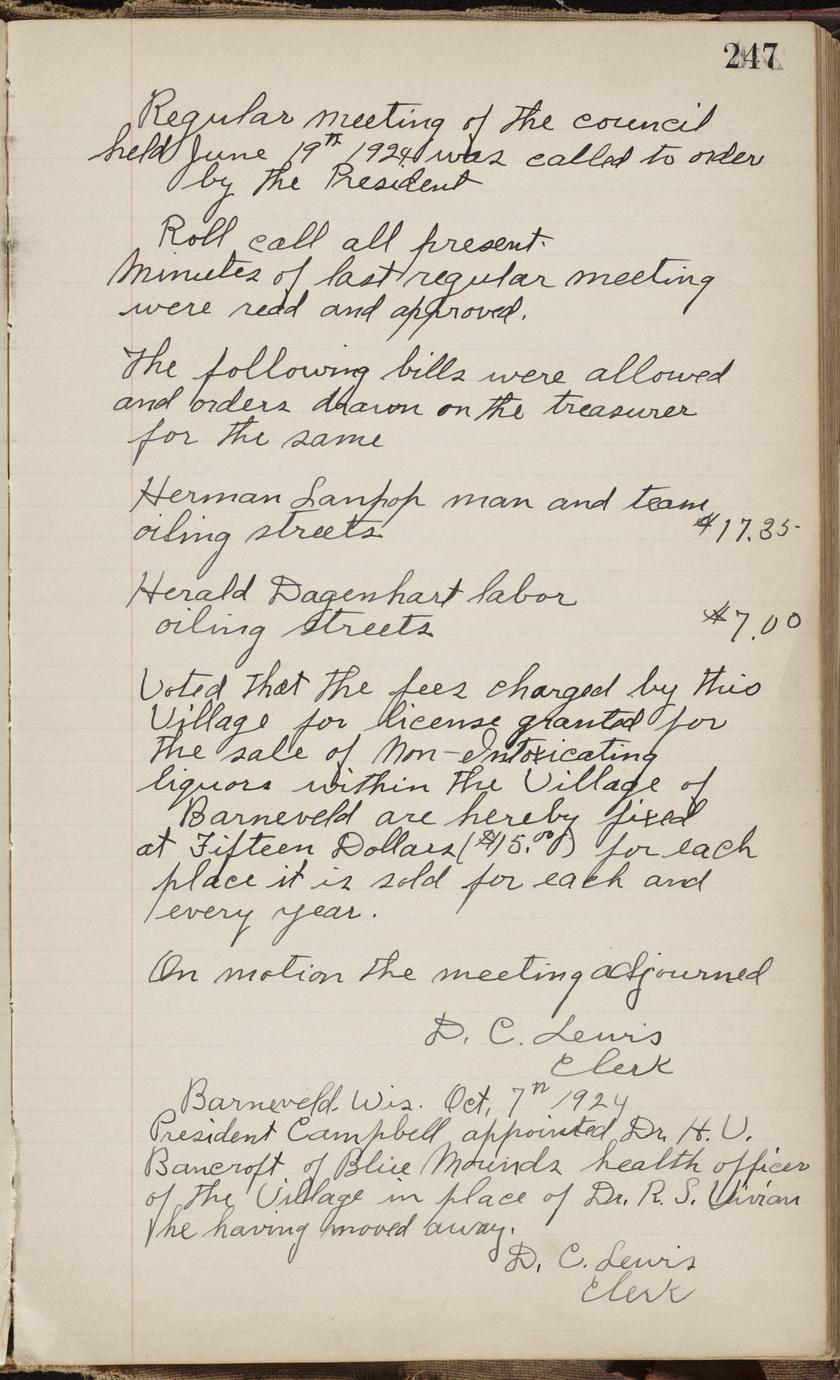 247
Regular meeting of the council
held June 19th 1924 was called to order
by the President
Roll call all present.
Minutes of last regular meeting
were read and approved.
The following bills were allowed
and orders drawn on the treasurer
for the same
Herman Lanpop man and team
oiling streets $17.35
Herald Dagenhart labor
oiling streets $7.00
Voted that the fees charged by this
Village for license granted for
the sale of Non-Intoxicating
liquors within the Village of
Barneveld are hereby fixed
at Fifteen Dollars ($15.00) for each
place it is sold for each and
every year.
On motion the meeting adjourned
D. C. Lewis
Clerk
Barneveld. Wis. Oct, 7th 1924
President Campbell appointed Dr. H. V.
Bancroft of Blue Mounds health officer
of the Village in place of Dr. R. S. Vivian
he having moved away.
D. C. Lewis
Clerk